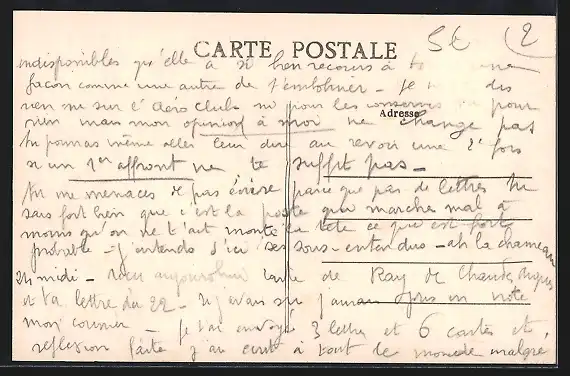 CARTE POSTALE
5E 2
indisponibles qu'elle a si bien recours à
façon comme une autre de t'embobiner - Je des
rien me sur l'Clois Club ni pour les conserves pour
Adresse
rien mais mon opinion à moi ne change pas
tu pourras même aller leur dire au revoir une 2e fois
si un 1er affront ne te suffit pas -
tu me menaces de pas écrire parce que pas de lettres tu
sais fort bien que c'est la poste qui marche mal à
moins qu'on ne t'ait monté la tête ce que est fort
probable - j'entends d'ici ses sous-entendus - ah la chameau
midi - reçu aujourd'hui carte de Ray de
et ta lettre du 22 - j'avais j'aurai une note
mon courrier - je t'ai envoyé 3 lettres et 6 cartes et,
réflexion faite j'ai écrit à tout le monde malgré